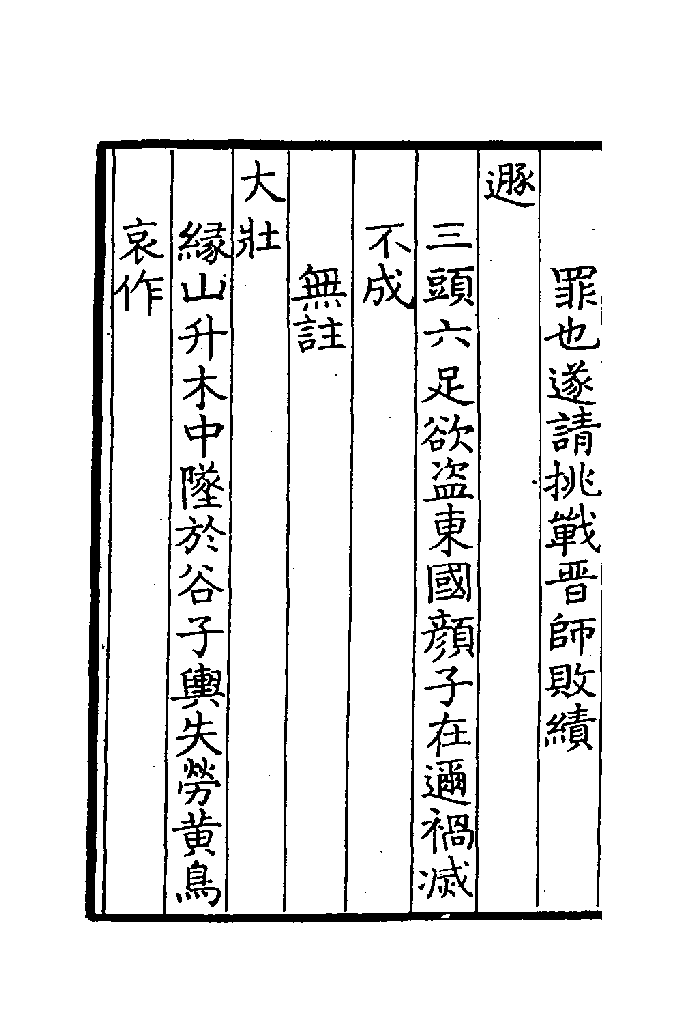 罪也遂請挑戰晋師敗績
遯
三頭六足欲盗東國顔子在邇禍滅
不成
無註
大壯
緣山升木中墜於谷子輿失勞黄鳥
哀作